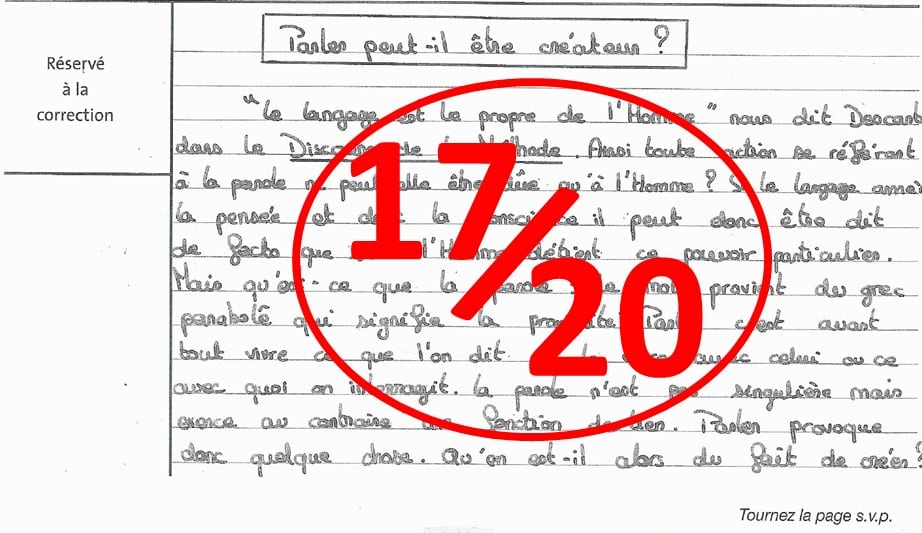 Réservé
à la
correction
Parler peut-il être créateur ?
"Le langage est le propre de l'Homme" nous dit Descart
dans le Discours de la Méthode. Ainsi toute action se référant
à la parole ne peut elle être dûe qu'à l'Homme ? Si le langage amène
la pensée et donc la conscience il peut donc être dit
de facto que l'Homme détient ce pouvoir particulier.
Mais qu'est-ce que la parole ? Le mot provient du grec
parabolê qui signifie la Parler c'est avant
tout vivre ce que l'on dit celui ou ce
avec quoi on interragit. La parole n'est pas singulière mais
exerce au contraire une fonction de lien. Parler provoque
donc quelque chose. Qu'en est-il alors du fait de créer ?
17/20
Tournez la page s.v.p.